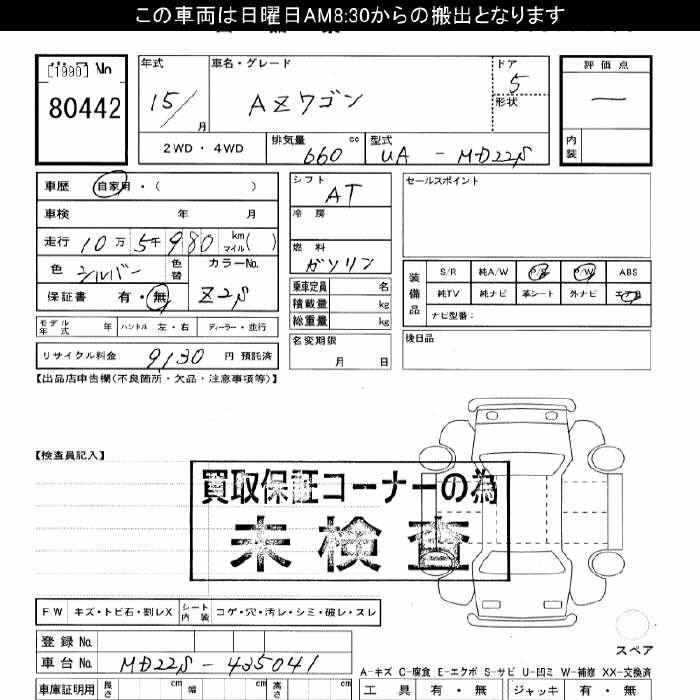 この車両は日曜日AM8:30からの搬出となります
[1990] No
80442
年式 15/ 月
車名・グレード AZワゴン
ドア 5
形状
評価点 一
内装
2WD・4WD
排気量 660 cc
型式 UA - MD22S
車歴 自家用・( )
車検 年 月
走行 10万5千980 km マイル( )
色 シルバー 色替
カラーNo. Z2S
保証書 有・無
モデル年式 年 ハンドル 左・右 ディーラー・並行
リサイクル料金 9130 円 預託済
シフト AT
冷房
燃料 ガソリン
乗車定員 名
積載量 kg
総重量 kg
名変期限 月 日
セールスポイント
装備品
S/R 純A/W P/S P/W ABS
純TV 純ナビ 革シート 外ナビ エアB
ナビ型番:
後日品
【出品店申告欄(不良箇所・欠品・注意事項等)】
【検査員記入】
買取保証コーナーの為
未検査
FW キズ・トビ石・割レX シート内装 コゲ・穴・汚レ・シミ・破レ・スレ
登録No.
車台No. MD22S-435041
車庫証明用 長さ cm 幅 cm 高さ cm
スペア
A-キズ C-腐食 E-エクボ S-サビ U-凹ミ W-補修 XX-交換済
工具 有・無 ジャッキ 有・無